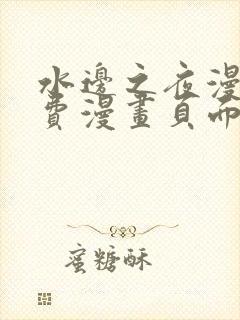 水邊之夜漫
費漫畫頁面
蜜糖酥